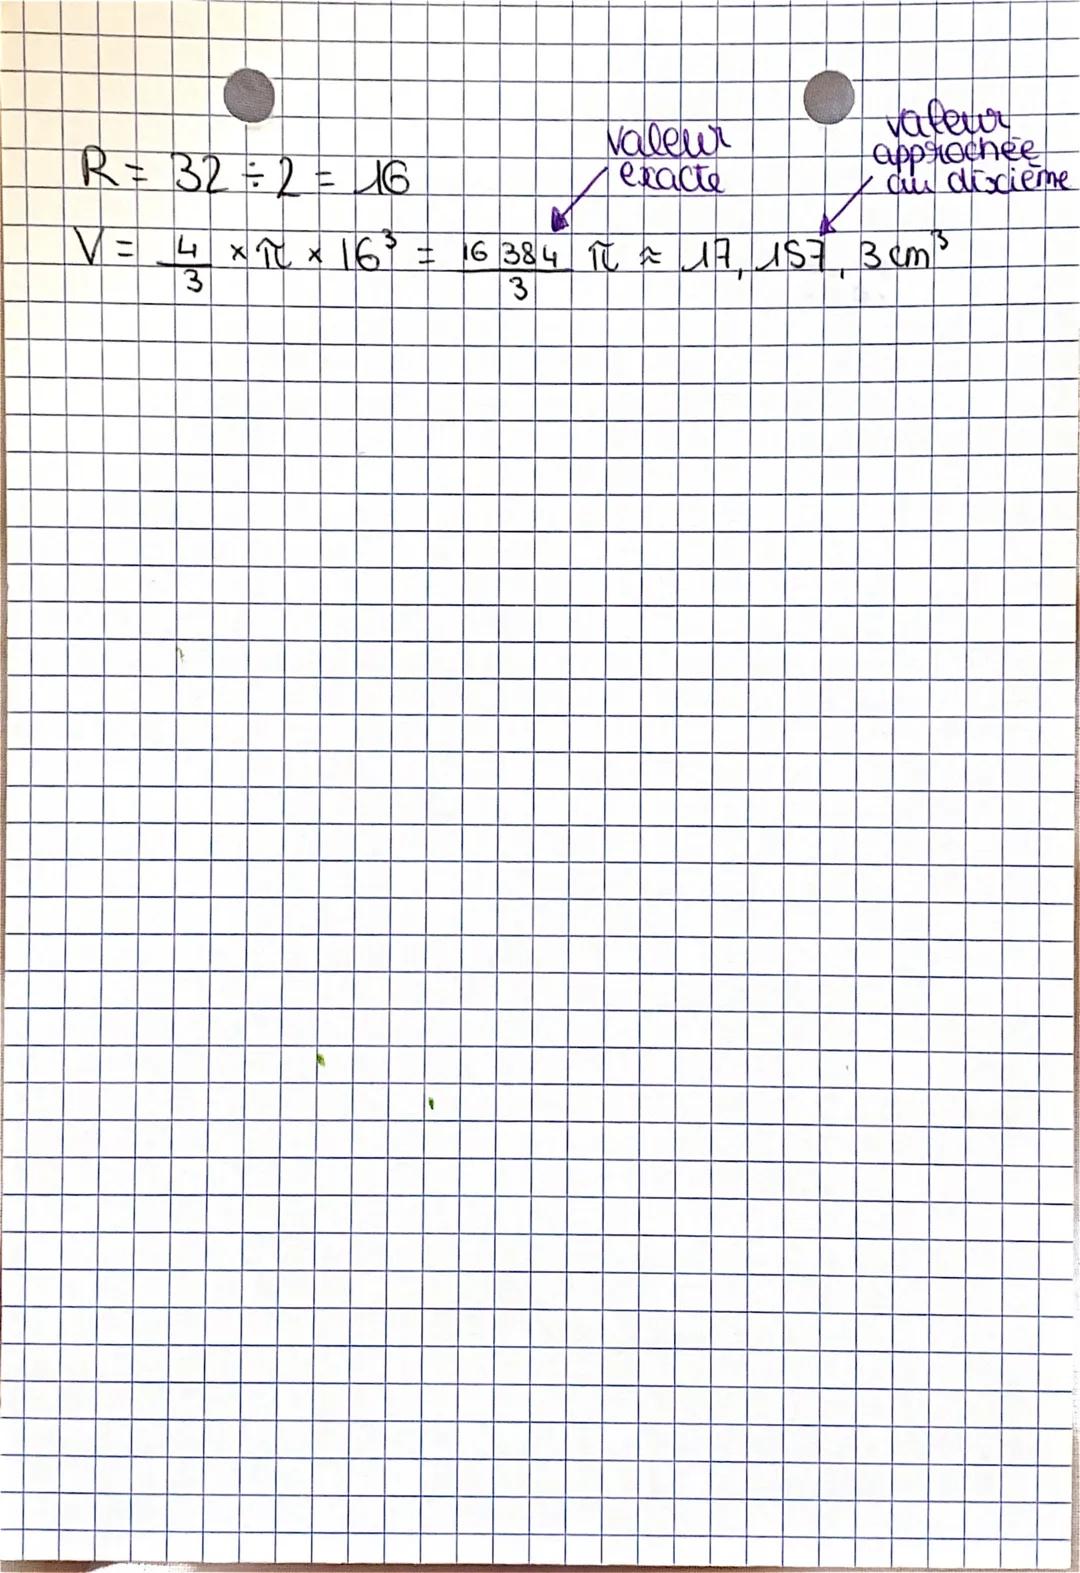 valeur
exacte
valeur
approchée
au dixième
R = 32 ÷ 2 = 16
V = 4/3 × π × 16³ = 16 384/3 π ≈ 17, 157, 3 cm³